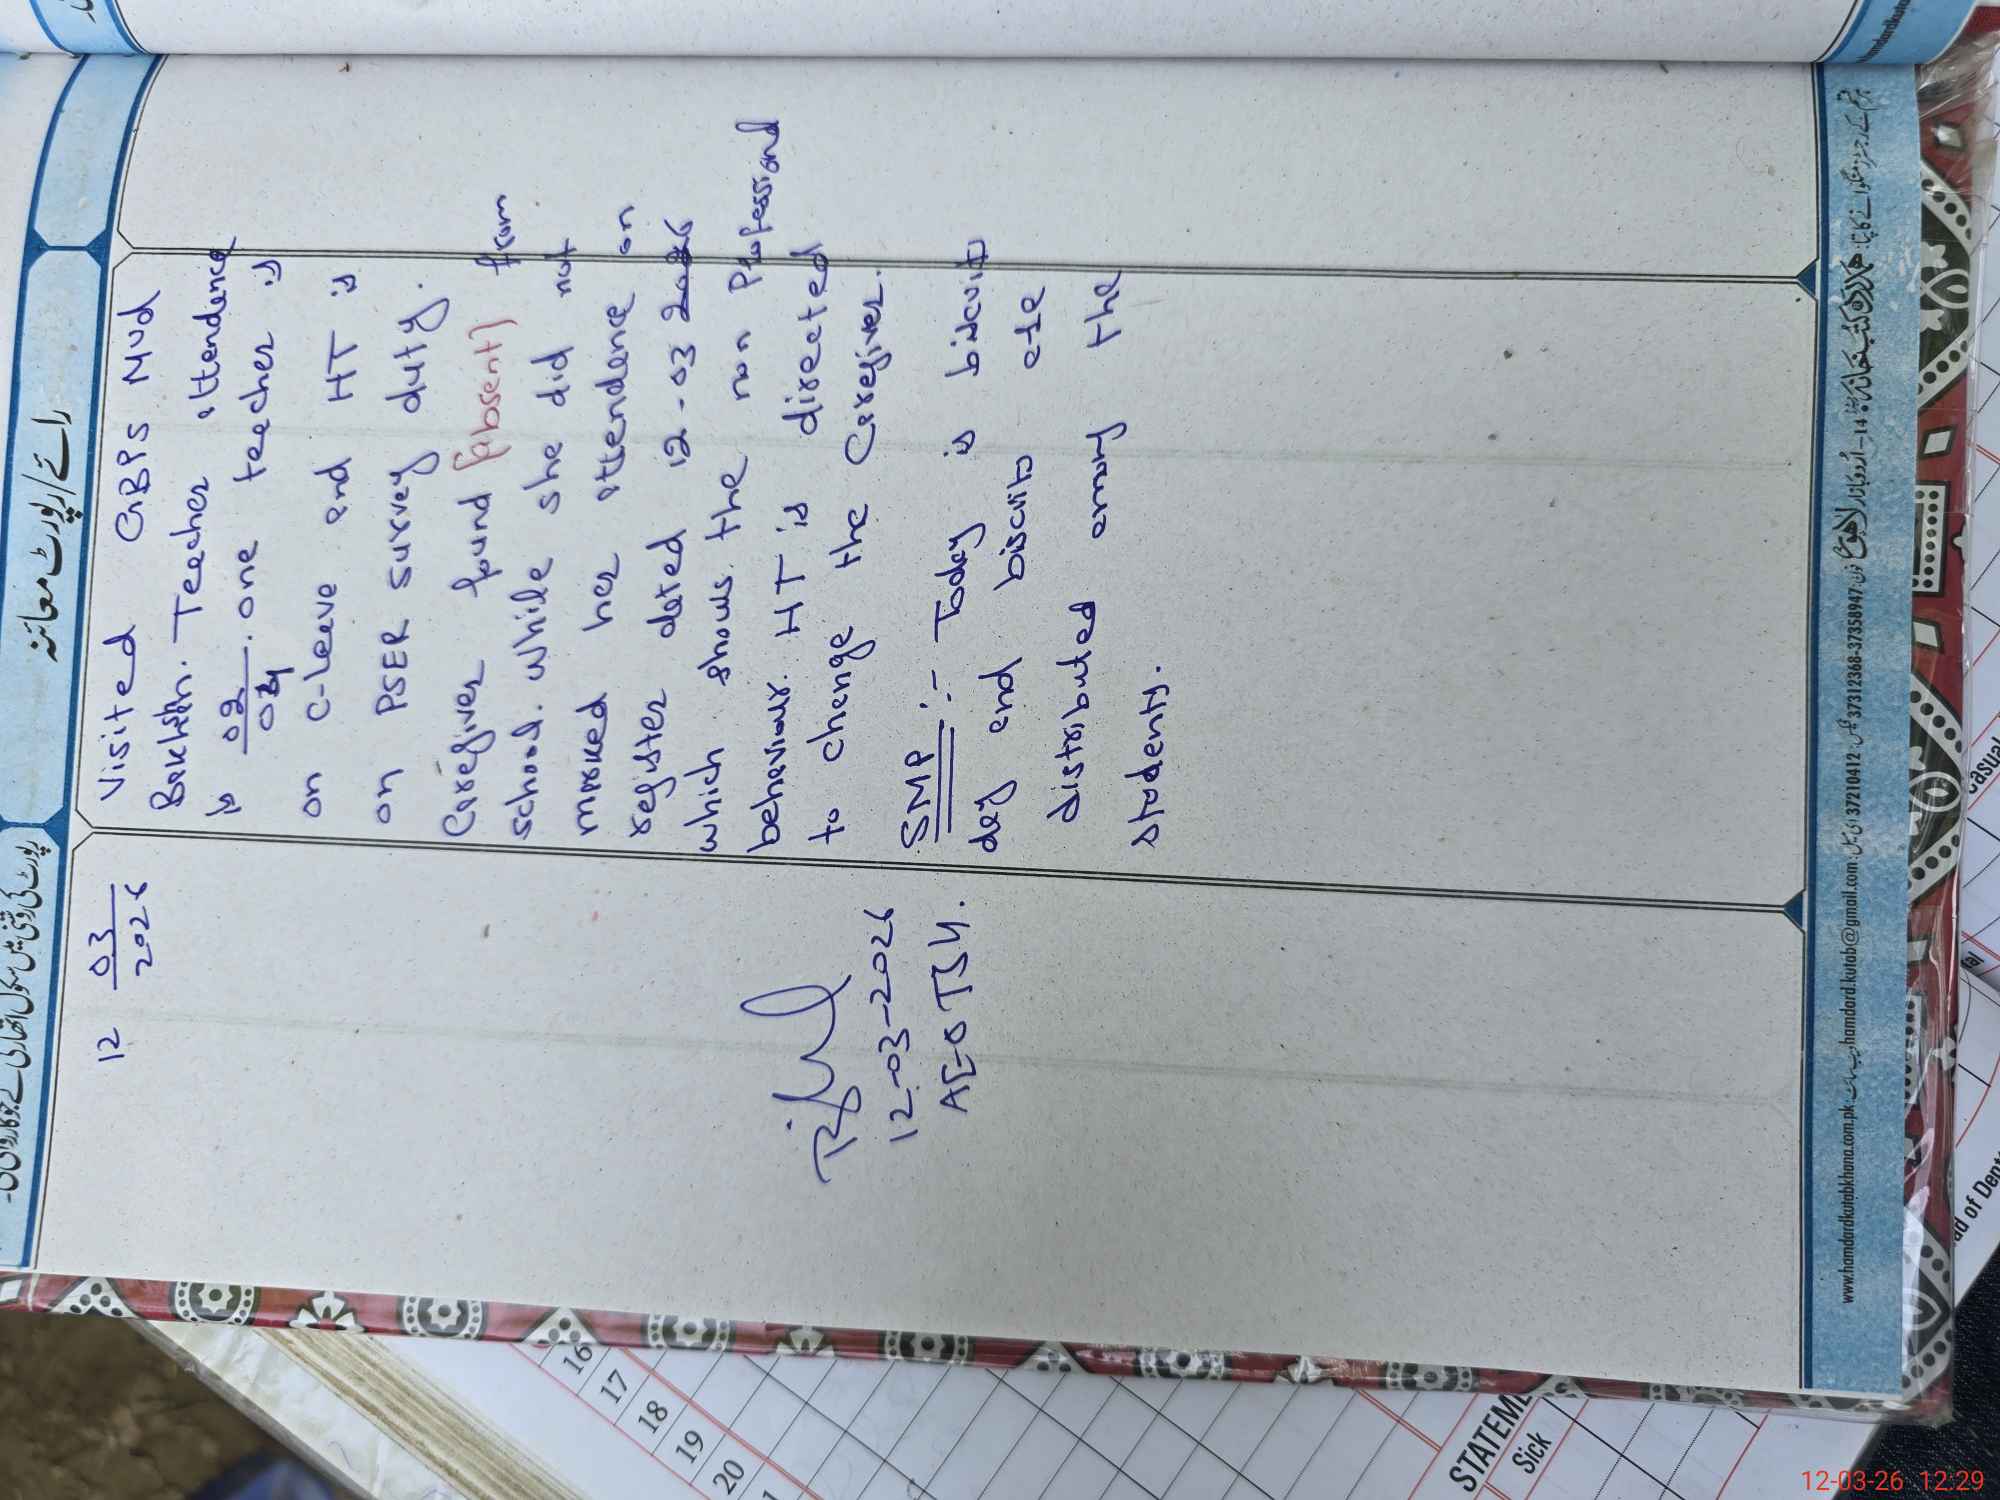 رائے/رپورٹ معائنہ
12 03/2026
Visited GBPS Nud
Bakhsh. Teacher attendence
is 02/04. one teacher is
on C-leave and HT is
on PSER survey duty.
Caregiver found (absent) from
school. while she did not
marked her attendence on
register dated 12-03 2026
which shows the non Professional
behaviour. HT is directed
to change the Caregiver.
SMP :- Today is biscuit
day and biscuits are
distributed among the
students.
12-03-2026
AEO TSH.
www.hamdardkutabkhana.com.pk ویب سائٹ: hamdard.kutab@gmail.com ای میل: 37210412 فیکس: 37312368-37358947 فون:
16
17
18
19
20
STATEME
Sick
Casual
ad of Dent
12-03-26 12:29